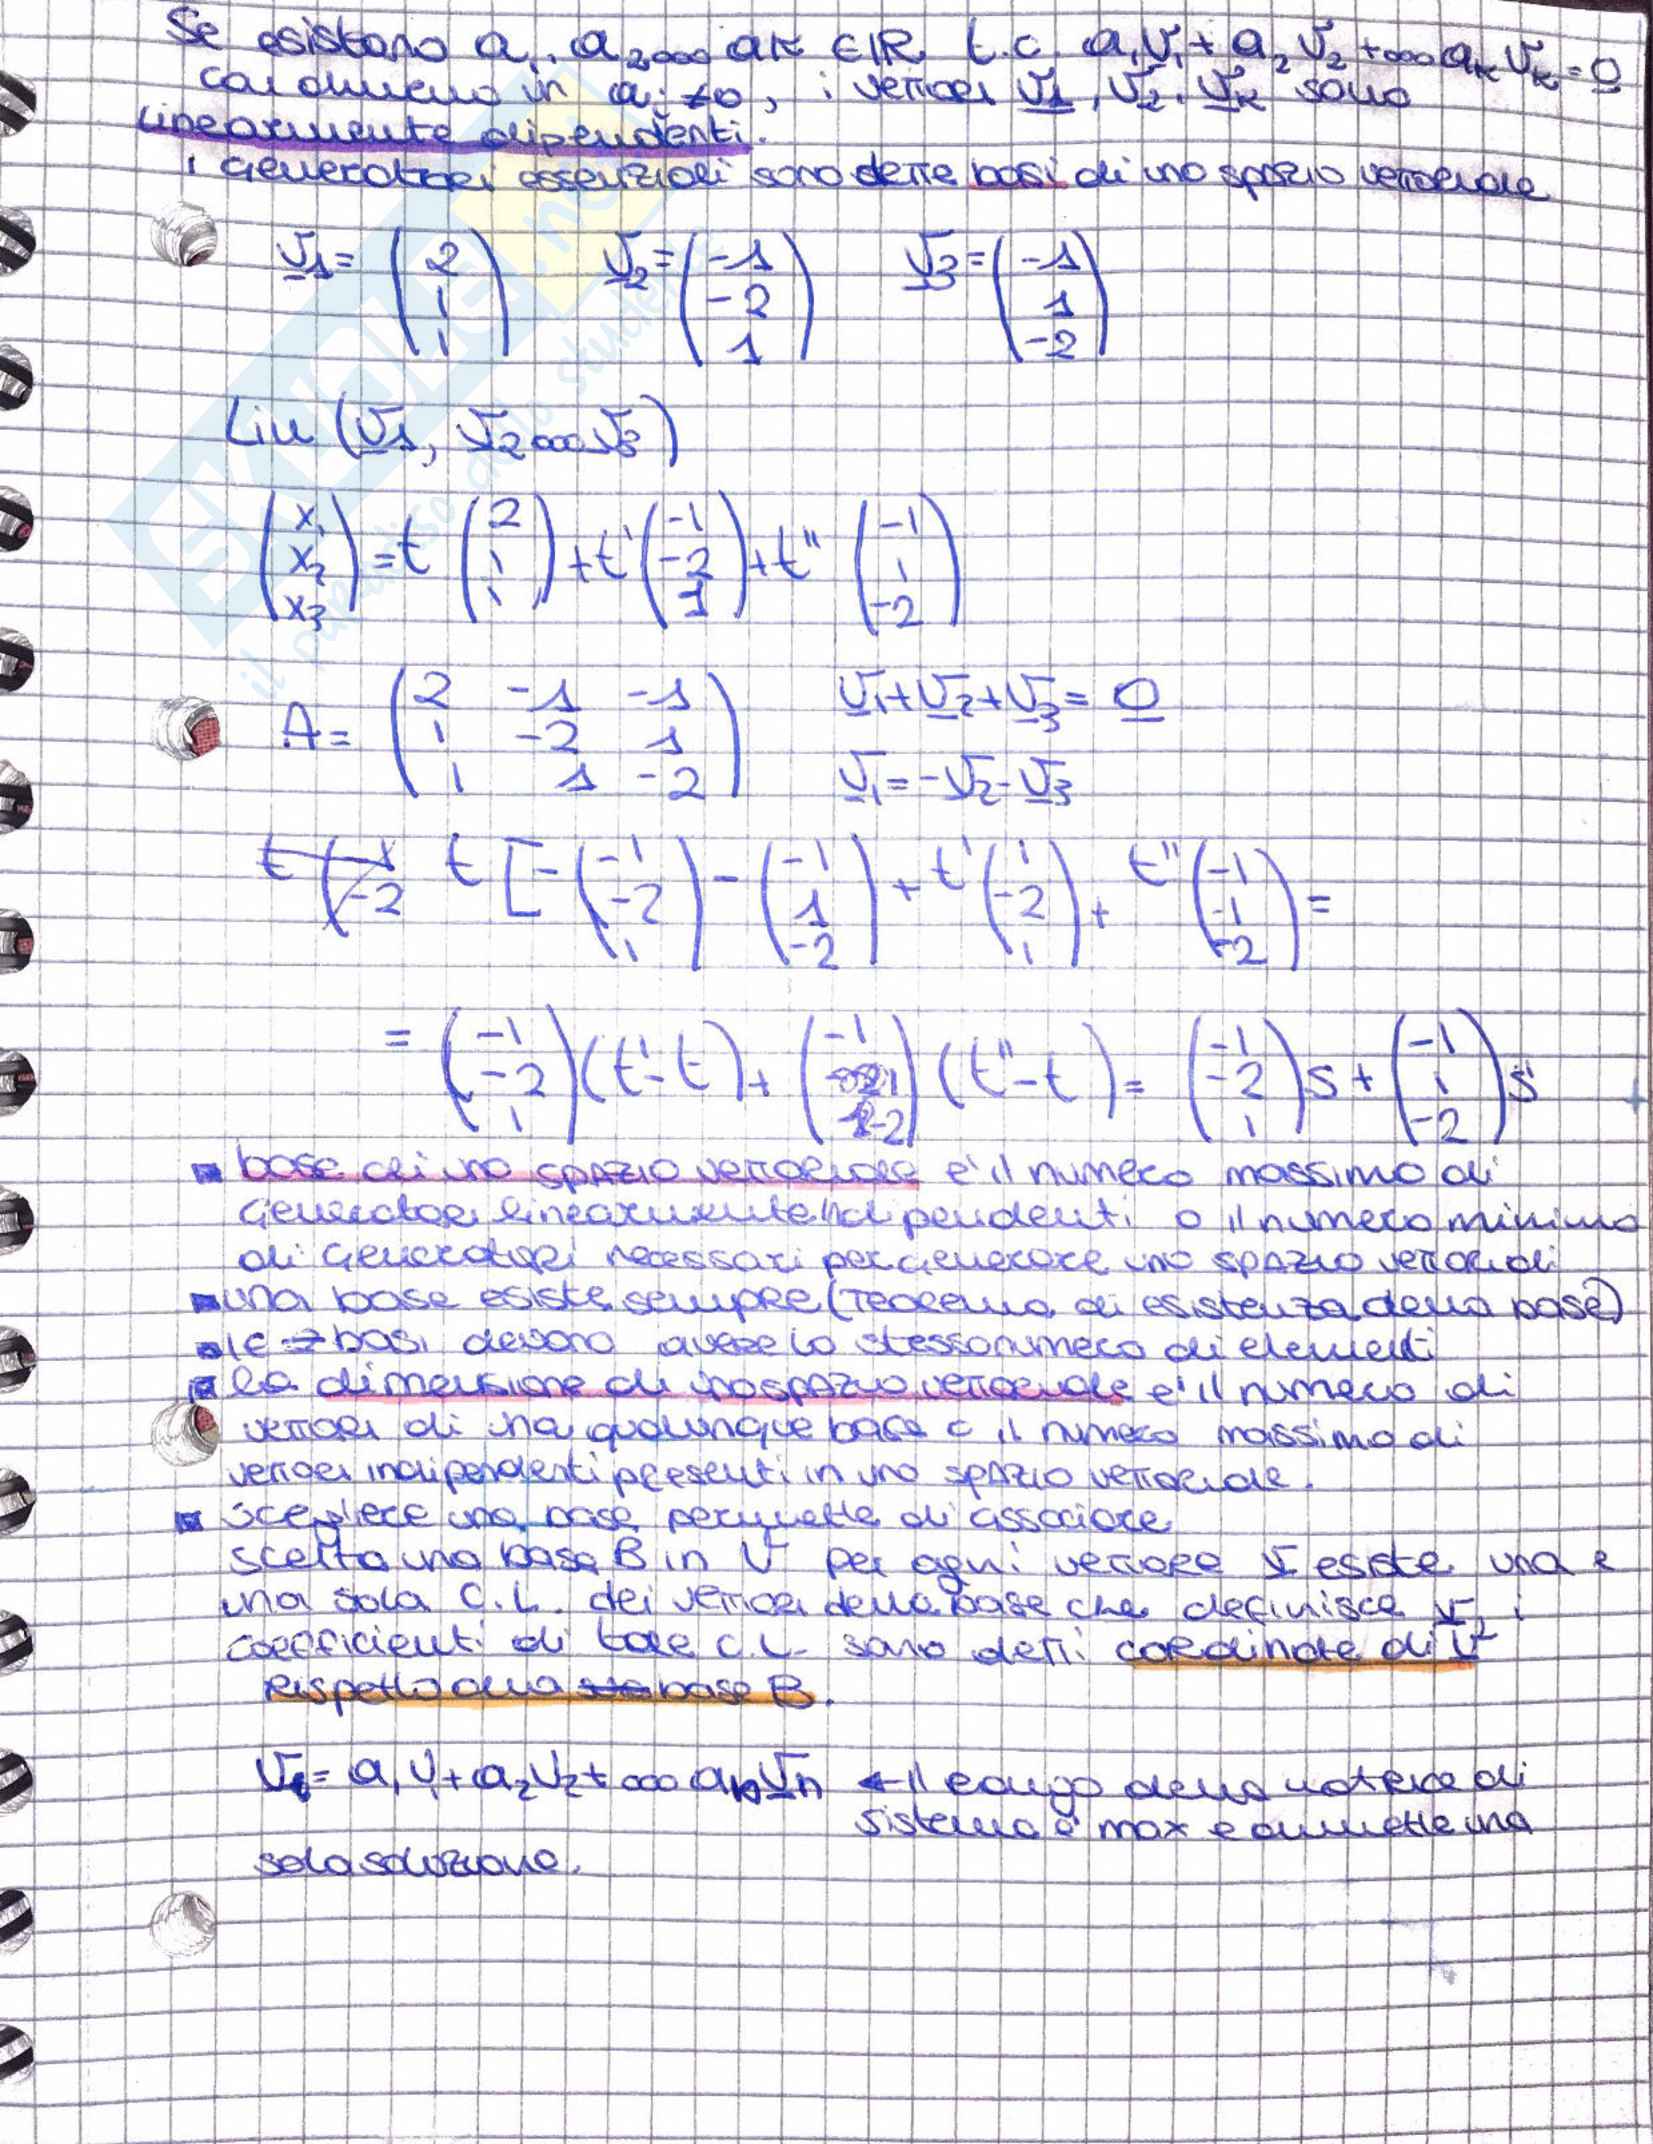 Se esistono a₁, a₂ooo aκ ∈ IR t.c. a₁v₁ + a₂ v₂ + ooo aκ vκ = 0
con almeno un aᵢ ≠ 0, i vettori v1, v2, vκ sono
linearmente dipendenti.
i generatori essenziali sono dette basi di uno spazio vettoriale
v1 = (2 1 1) v2 = (-1 -2 1) v3 = (-1 1 -2)
Lin (v1, v2ooov3)
(x₁ x₂ x₃) = t (2 1 1) + t' (-1 -2 1) + t'' (-1 1 -2)
A = (2 -1 -1
1 -2 1
1 1 -2)
v₁+v₂+v₃ = 0
v₁ = -v₂ - v₃
t [-(-1 -2 1) - (-1 1 -2) + t' (1 -2 1) + t'' (-1 -1 -2) =
= (-1 -2 1)(t'-t) + (-1 1 -2)(t''-t) = (-1 -2 1)s + (-1 1 -2)s'
base di uno spazio vettoriale e' il numero massimo di
generatori linearmente indipendenti o il numero minimo
di generatori necessari per generare uno spazio vettoriali
una base esiste sempre (Teorema di esistenza della base)
le ≠ basi devono avere lo stesso numero di elementi
la dimensione di uno spazio vettoriale e' il numero di
vettori di una qualunque base o il numero massimo di
vettori indipendenti presenti in uno spazio vettoriale.
scegliere una base permette di associare
scelta una base B in V per ogni vettore v esiste una e
una sola C.L. dei vettori della base che definisce v, i
coefficienti di tale C.L. sono detti cordinate di v
rispetto alla base B.
v = a₁v₁ + a₂v₂ + ooo anvn ← il rango della matrice di
sistema e' max e ammette una
sola soluzione.